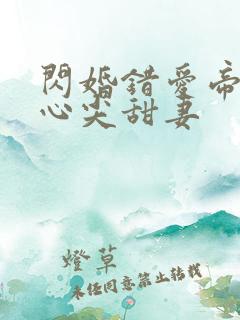 閃婚錯愛帝
心尖甜妻
燈草
未任同意禁止轉載